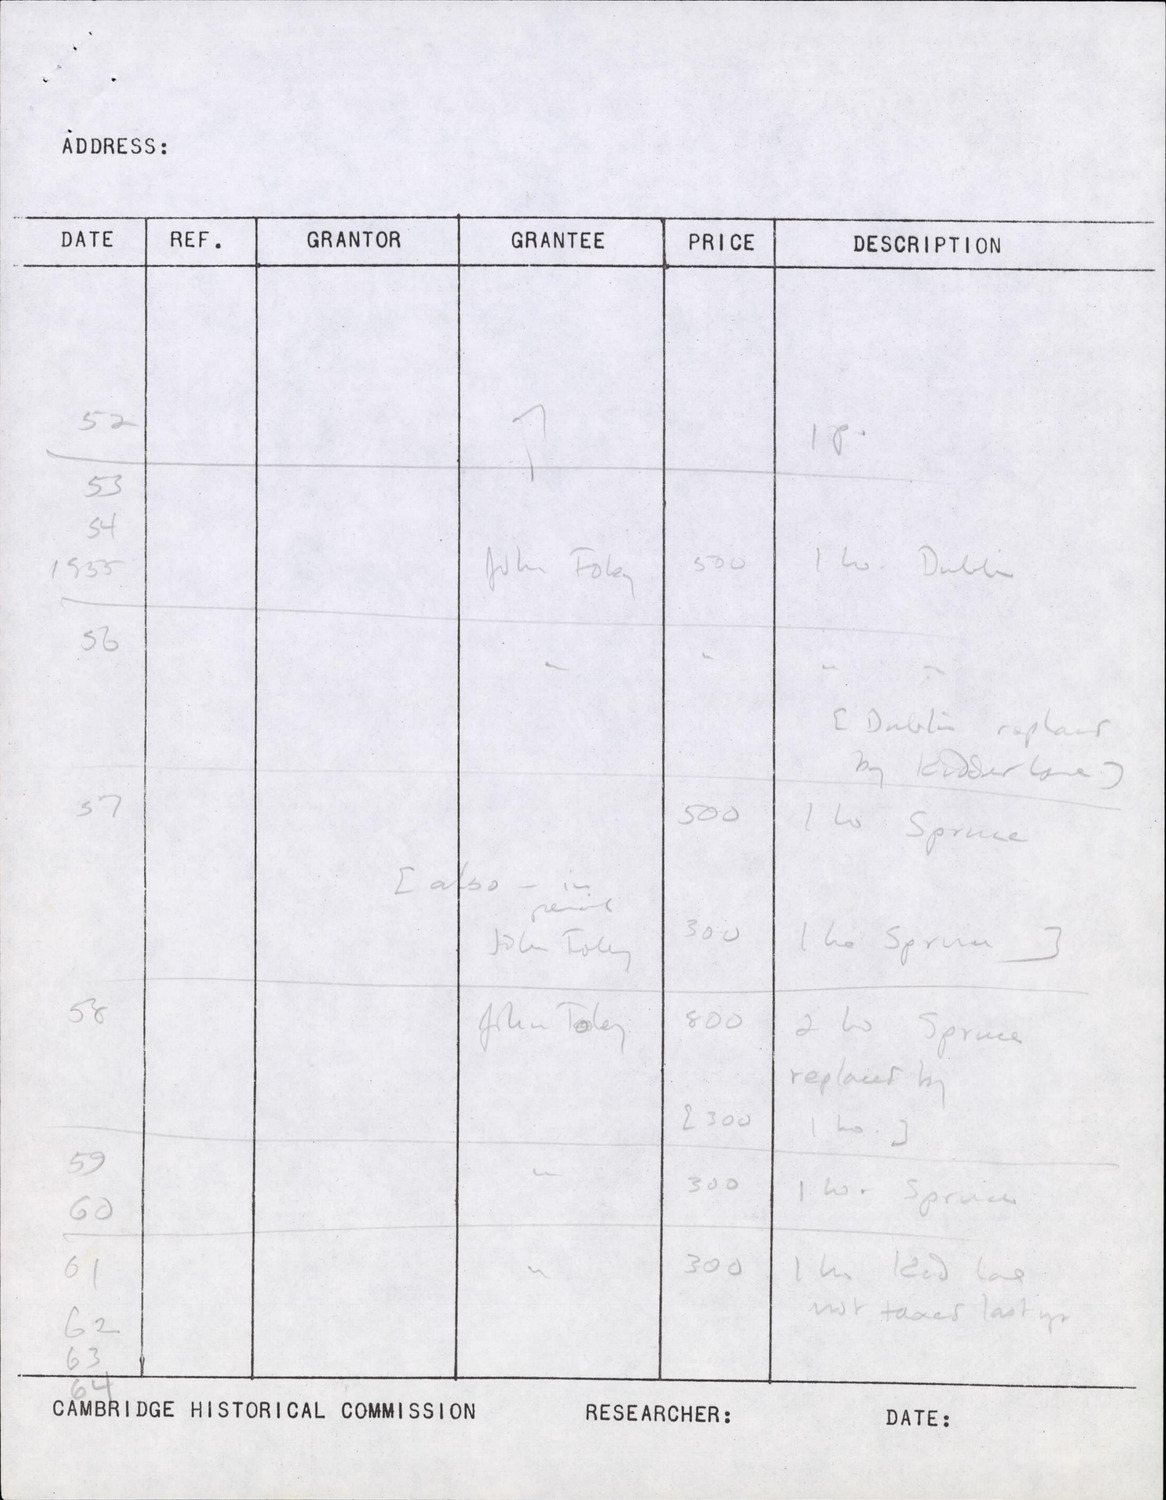 ADDRESS:
DATE REF. GRANTOR GRANTEE PRICE DESCRIPTION
52
53
54
1955 John Foley 500 1 ho. Dublin
56 " " " "
[Dublin replaced
by Kidder Lane]
57 500 1 ho Spruce
[also - in
pencil
John Foley 300 1 ho Spruce]
58 John Foley 800 2 ho Spruce
replaced by
[300 1 ho.]
59 "
300 1 ho. Spruce
60
61 " 300 1 ho Kid Lane
not taxed last yr
62
63
64
CAMBRIDGE HISTORICAL COMMISSION RESEARCHER: DATE: